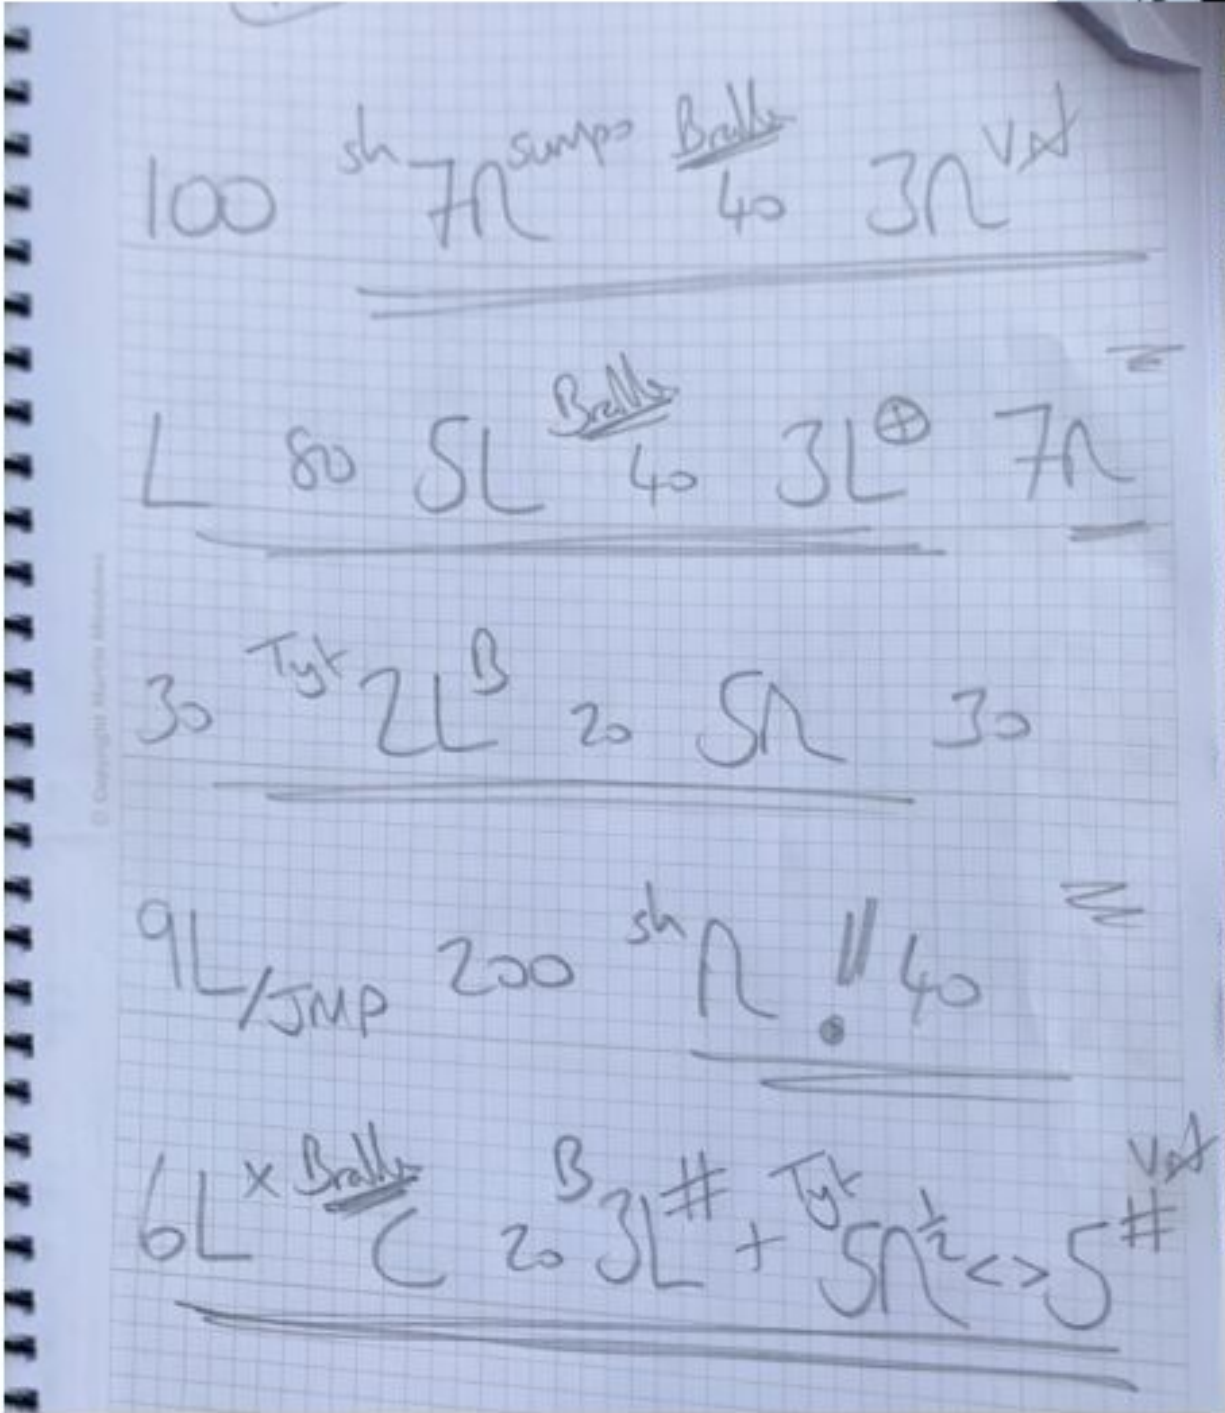 100 sh 7R sumps Brake 40 3R
L 80 5L Brake 40 3L⊕ 7R
30 Tyt 2L B 20 5R 30
9L/JMP 200 sh R !! 40
6L x Brake C 20 B 3L # + Tyt 5R ½ <> 5 #
© Copyright Martin